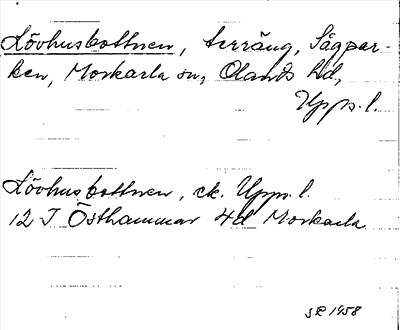 Lövhusbottnen, terräng, Sågpar-
ken, Morkarla sn, Olands hd,
Upps. l.
Lövhusbottnen, ek. Upps. l.
12 I Östhammar 4d Morkarla
1958